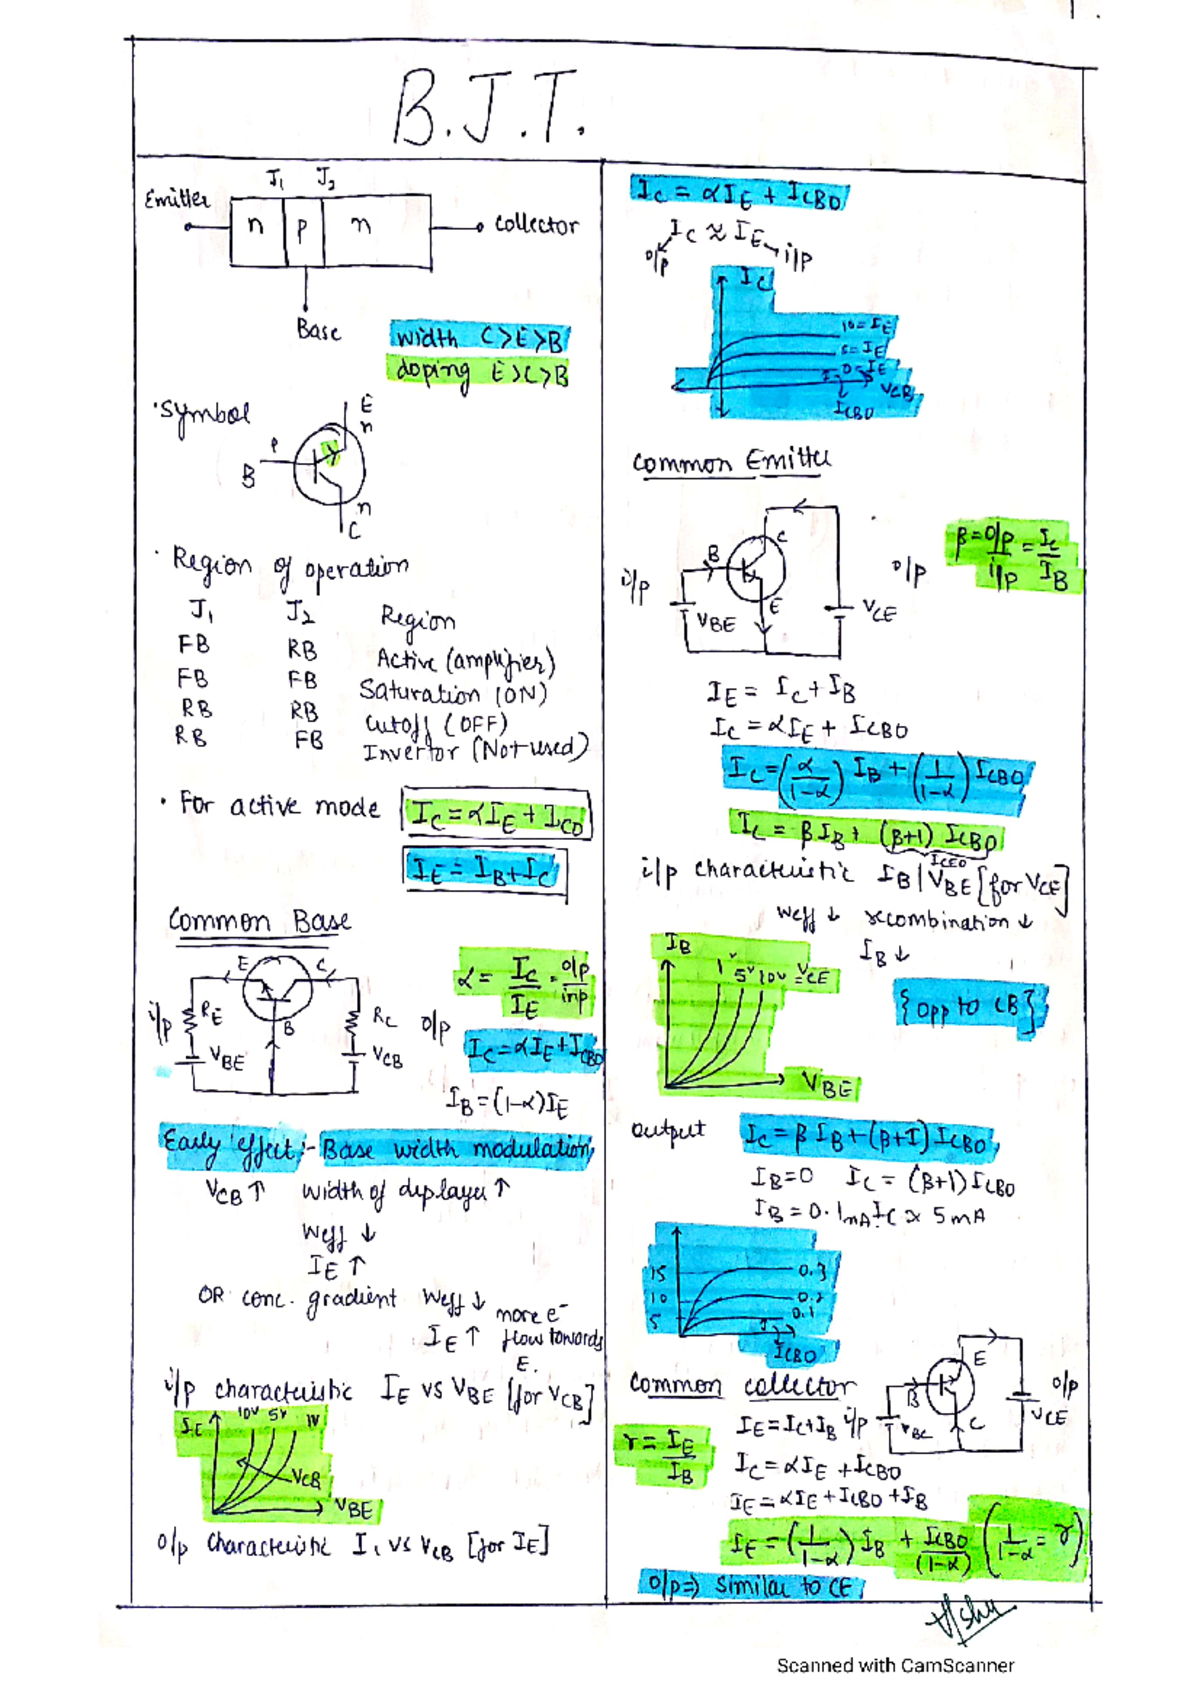 B.J.T.
J₁ J₂
Emitter n p n Collector
Base
width C>E>B
doping E>C>B
·Symbol
E
n
P
B
n
C
· Region of operation
J₁ J₂ Region
FB RB Active (amplifier)
FB FB Saturation (ON)
RB RB Cutoff (OFF)
RB FB Invertor (Not used)
· For active mode I_C = αI_E + I_CO
I_E = I_B + I_C
Common Base
E C
i/p R_E B R_C o/p
V_BE V_CB
α = I_C/I_E = o/p/inp
I_C = αI_E + I_CBO
I_B = (1-α)I_E
Early effect :- Base width modulation,
V_CB ↑ width of dep layer ↑
Weff ↓
I_E ↑
OR conc. gradient Weff ↓ more e⁻
I_E ↑ flow towards
E.
i/p characteristic I_E vs V_BE [for V_CB]
I_E 10V 5V 1V
V_CB
V_BE
o/p characteristic I_C vs V_CB [for I_E]
I_C = αI_E + I_CBO
I_C ≈ I_E
o/p i/p
I_C
10 = I_E
5 = I_E
0 = I_E
V_CB
I_CBO
Common Emitter
C
B
i/p o/p
E
V_BE V_CE
β = o/p/i/p = I_C/I_B
I_E = I_C + I_B
I_C = αI_E + I_CBO
I_C = (α/1-α) I_B + (1/1-α) I_CBO
I_C = β I_B + (β+1) I_CBO
I_CEO
i/p characteristic I_B | V_BE [for V_CE]
Weff ↓ recombination ↓
I_B ↓
I_B
1V 5V 10V = V_CE
{opp to CB}
V_BE
Output I_C = β I_B + (β+1) I_CBO,
I_B = 0 I_C = (β+1) I_CBO
I_B = 0.1mA I_C ≈ 5mA
15 0.3
10 0.2
5 0.1
I_CBO
Common collector
E
B
i/p o/p
C
V_BC V_CE
γ = I_E/I_B
I_E = I_C + I_B
I_C = αI_E + I_CBO
I_E = αI_E + I_CBO + I_B
I_E = (1/1-α) I_B + I_CBO/(1-α) (1/1-α = γ)
o/p ⇒ similar to CE,
Scanned with CamScanner